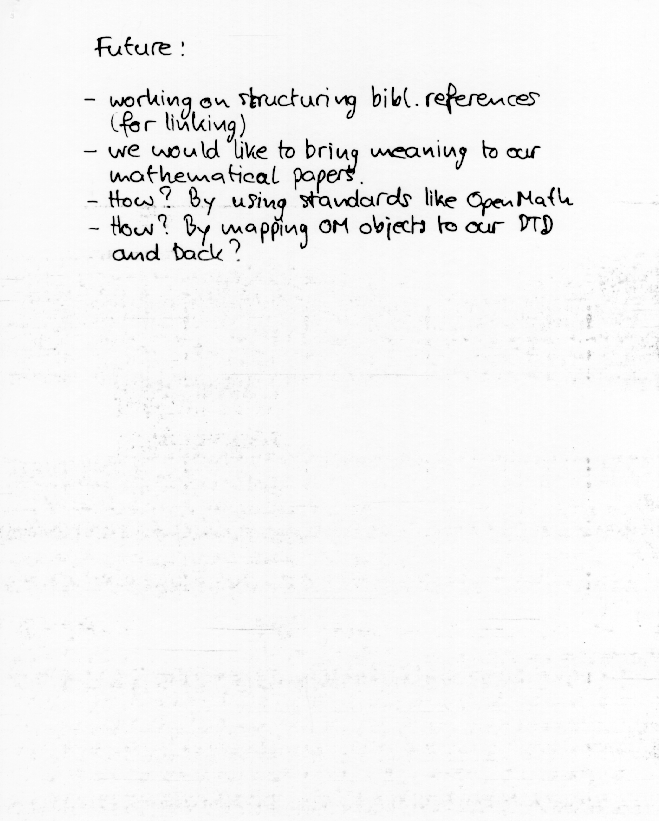 Future :
- working on structuring bibl. references
(for linking)
- we would like to bring meaning to our
mathematical papers.
- How? By using standards like OpenMath
- How? By mapping OM objects to our DTD
and back?